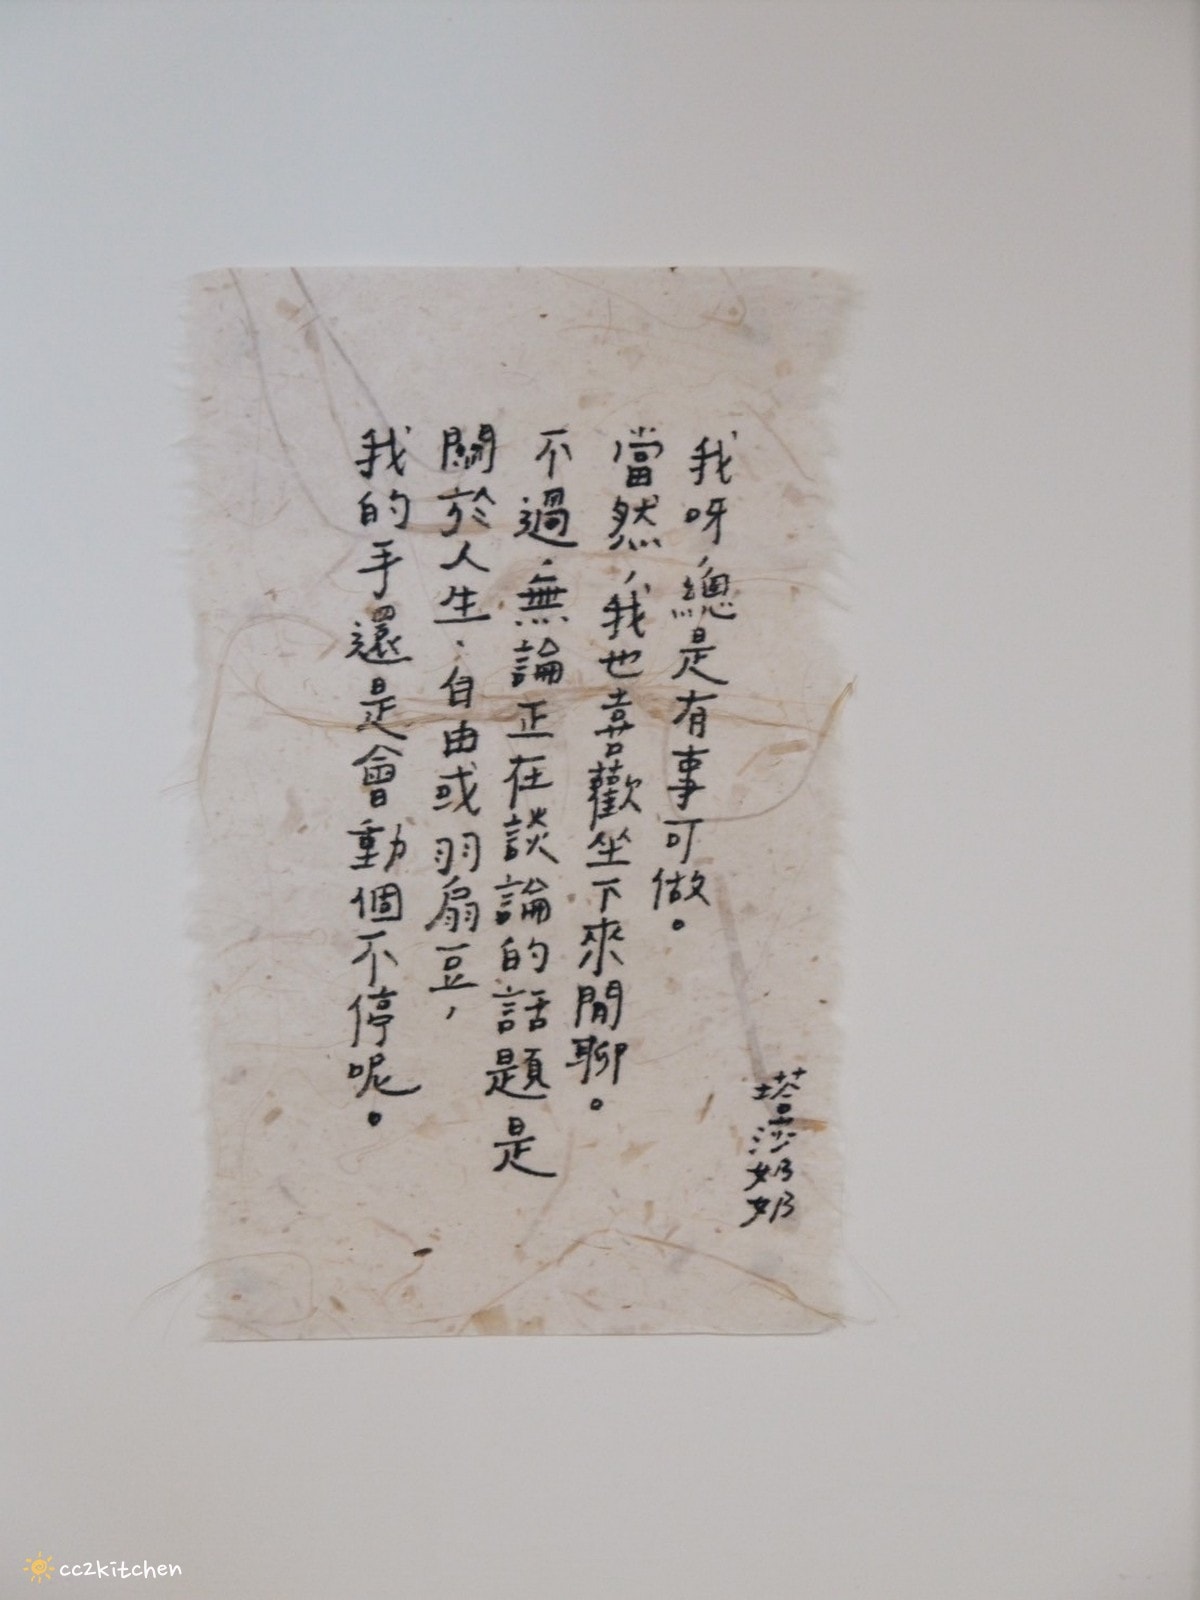 塔莎奶奶
我呀，總是有事可做。
當然，我也喜歡坐下來閒聊。
不過，無論正在談論的話題是
關於人生、自由或羽扇豆，
我的手還是會動個不停呢。
cc2kitchen